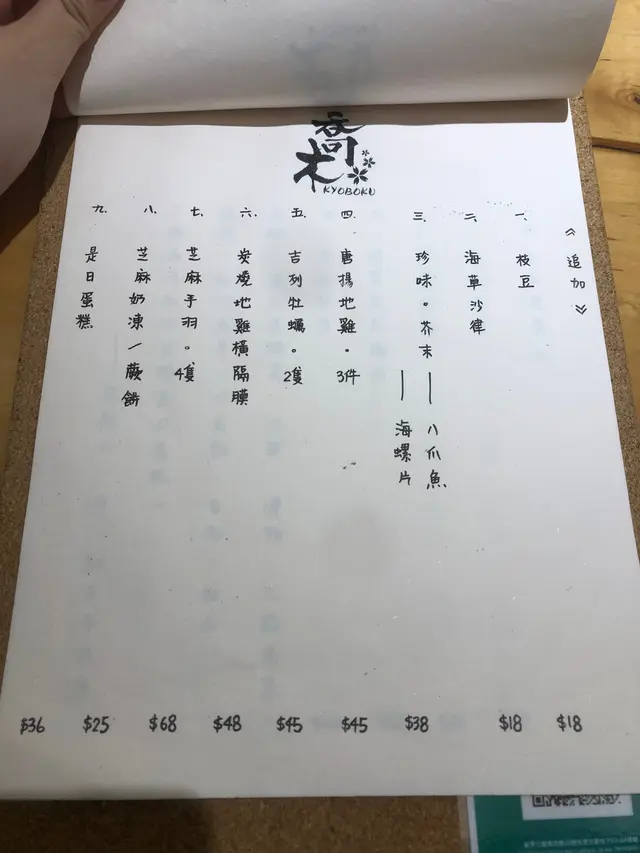 喬木
KYOBOKU
《追加》
一、枝豆
$18
二、海草沙律
$18
三、珍味。芥末
八爪魚
海螺片
$38
四、唐揚地雞。3件
$45
五、吉列牡蠣。2隻
$45
六、炭燒地雞橫隔膜
$48
七、芝麻手羽。4隻
$68
八、芝麻奶凍/蕨餅
$25
九、是日蛋糕
$36